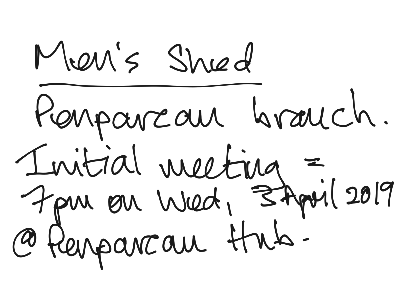 Men's Shed
Penparcau branch.
Initial meeting =
7pm on Wed, 3 April 2019
@ Penparcau Hub.